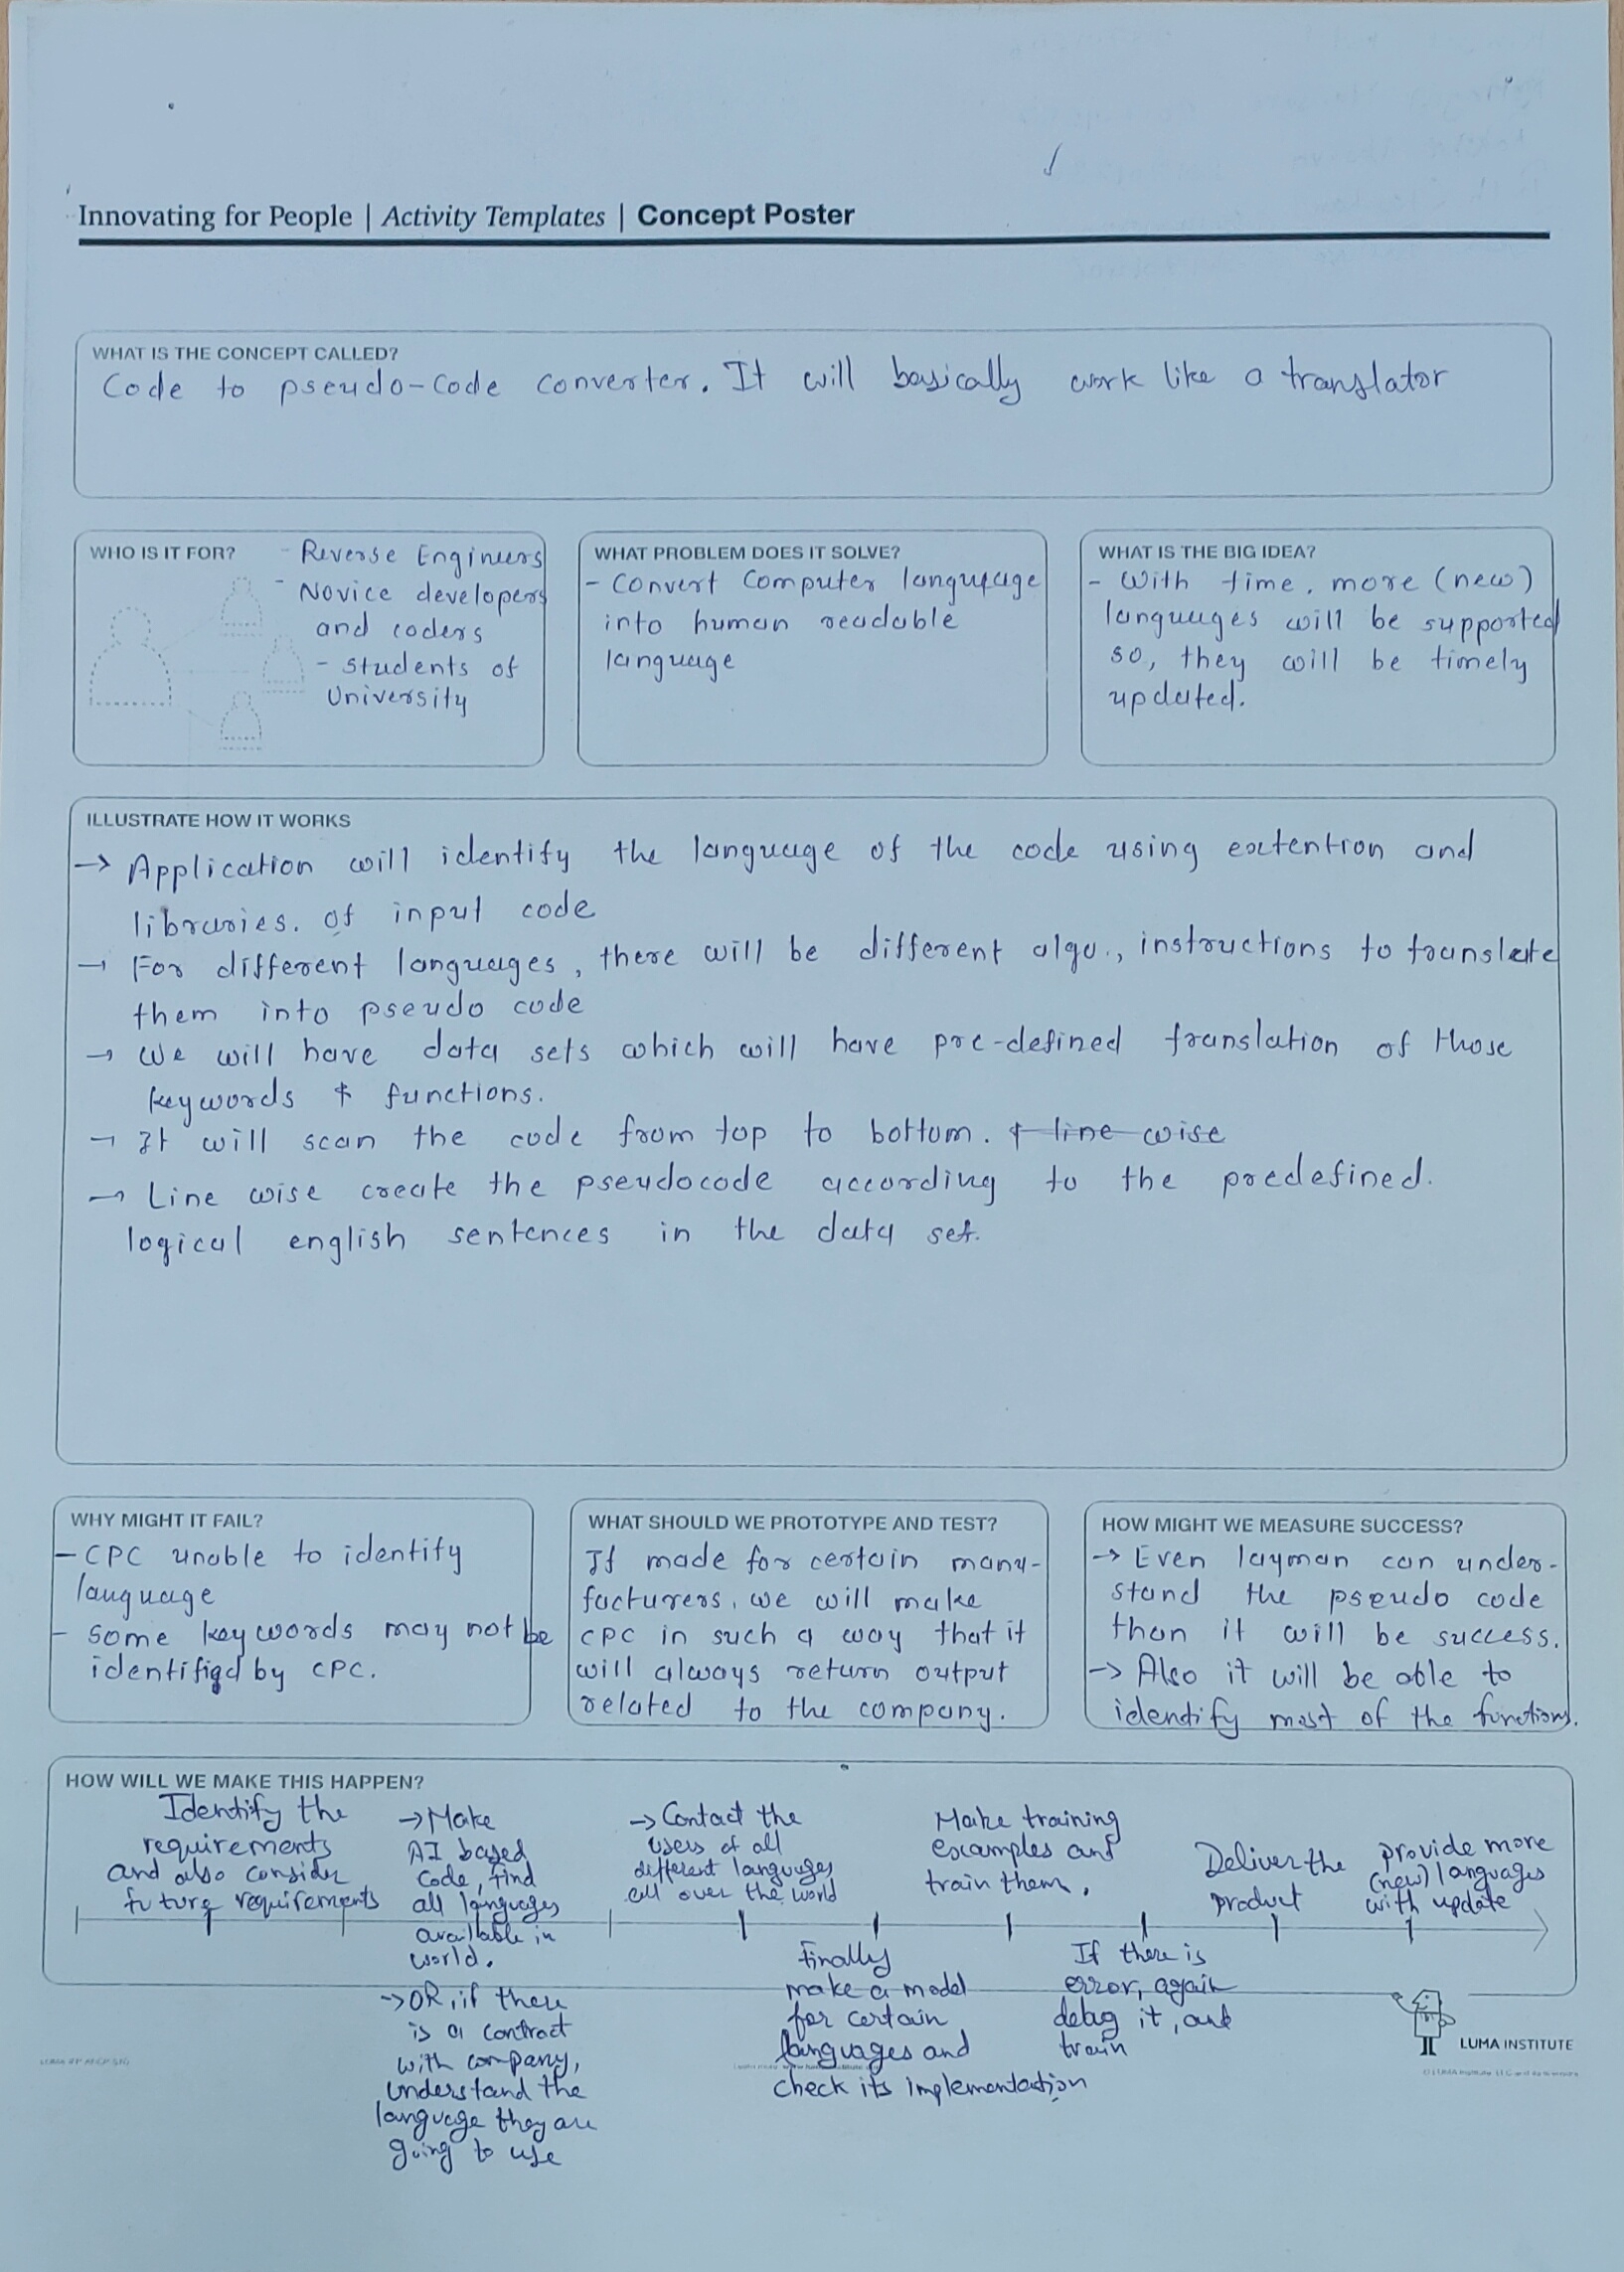 Innovating for People | Activity Templates | Concept Poster
WHAT IS THE CONCEPT CALLED?
Code to pseudo-code converter. It will basically work like a translator
WHO IS IT FOR?
- Reverse Engineers
- Novice developers
and coders
- Students of
University
WHAT PROBLEM DOES IT SOLVE?
- Convert Computer language
into human readable
language
WHAT IS THE BIG IDEA?
- With time, more (new)
languages will be supported
so, they will be timely
updated.
ILLUSTRATE HOW IT WORKS
→ Application will identify the language of the code using extention and
libraries. of input code
→ For different languages, there will be different algo., instructions to translate
them into pseudo code
→ We will have data sets which will have pre-defined translation of those
keywords & functions.
→ It will scan the code from top to bottom. & line wise
→ Line wise create the pseudocode according to the predefined.
logical english sentences in the data set.
WHY MIGHT IT FAIL?
- CPC unable to identify
language
- Some keywords may not be
identified by CPC.
WHAT SHOULD WE PROTOTYPE AND TEST?
If made for certain manu-
facturers, we will make
CPC in such a way that it
will always return output
related to the company.
HOW MIGHT WE MEASURE SUCCESS?
→ Even layman can under-
stand the pseudo code
then it will be success.
→ Also it will be able to
identify most of the functions.
HOW WILL WE MAKE THIS HAPPEN?
Identify the
requirements
and also consider
future requirements
→ Make
AI based
code, find
all languages
available in
world.
→ OR, if there
is a contract
with company,
understand the
language they are
going to use
→ Contact the
users of all
different languages
all over the world
Finally
make a model
for certain
languages and
check its implementation
Make training
examples and
train them.
If there is
error, again
debug it, and
train
Deliver the
product
provide more
(new) languages
with update
LUMA INSTITUTE